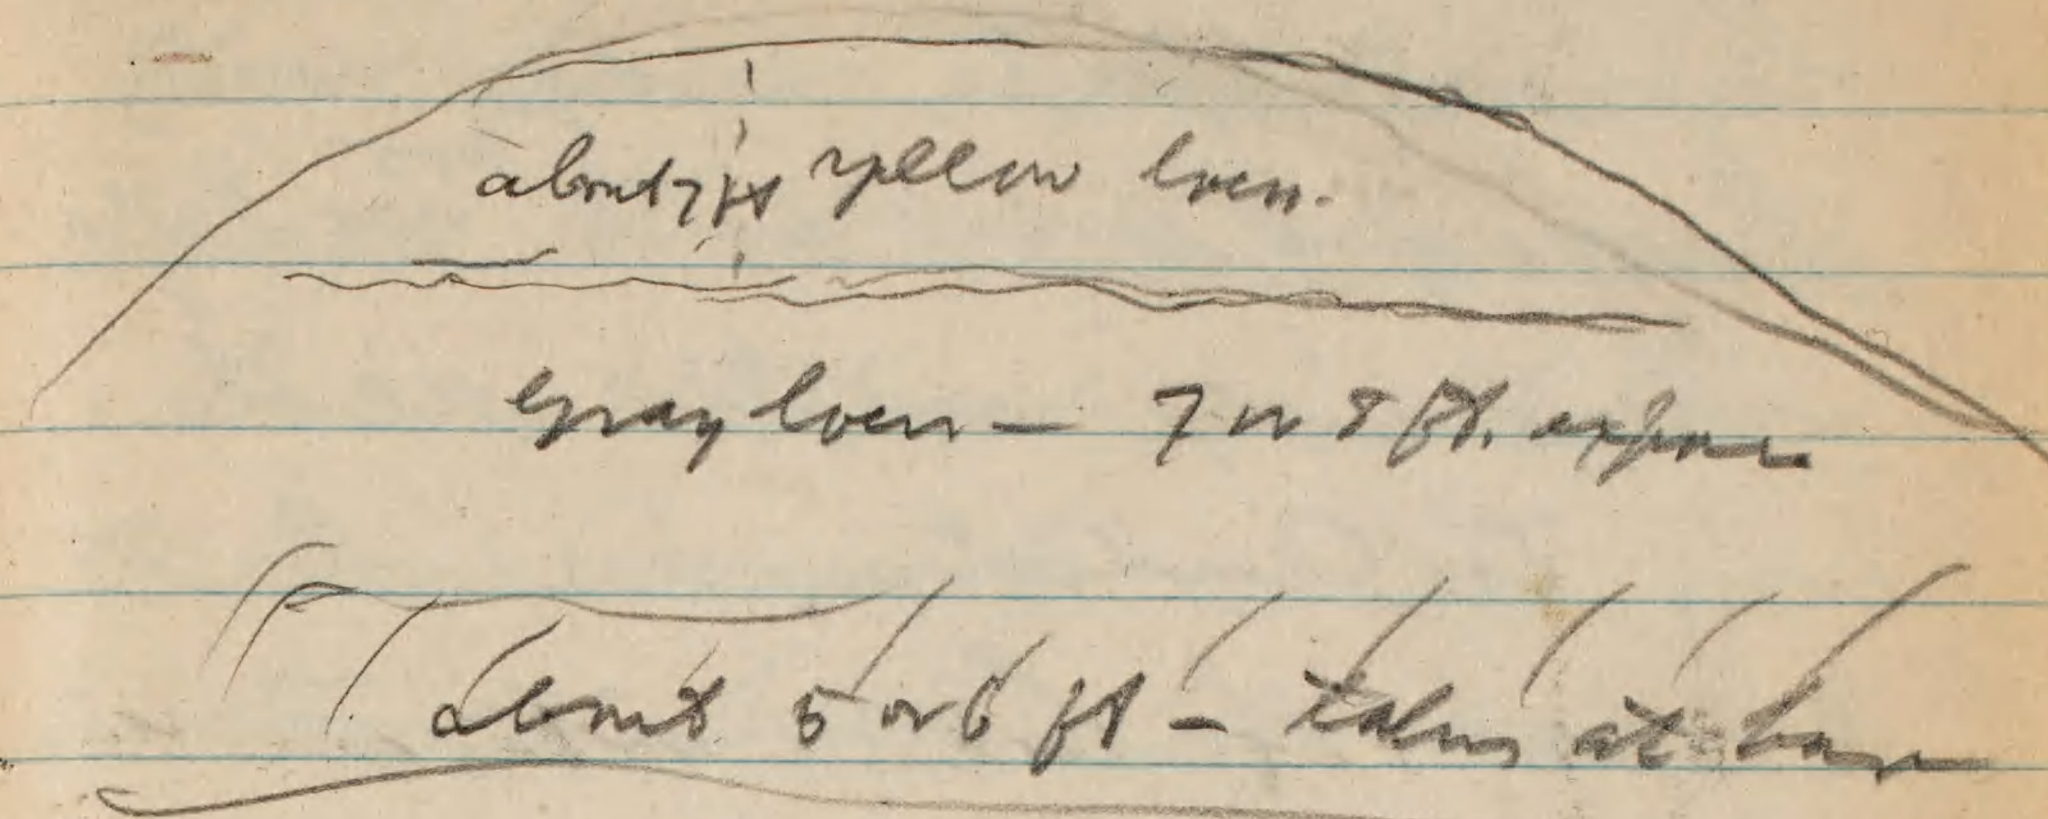 about 7 ft yellow loess.
Gray loess — 7 or 8 ft. expose
about 5 or 6 ft — talus at base